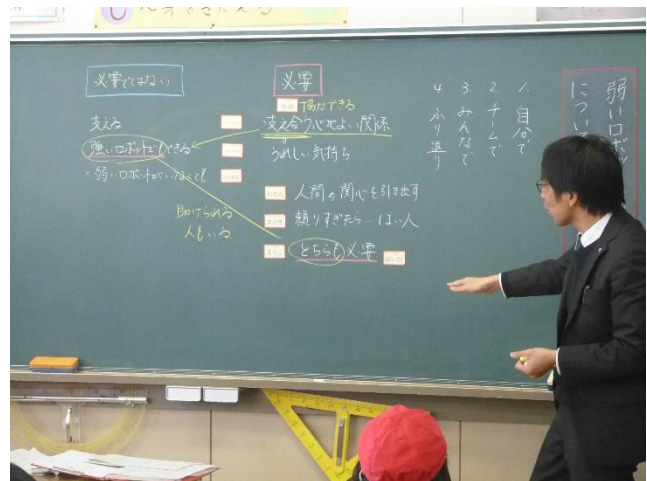 弱いロボッ
につい
1. 自分で
2. チームで
3. みんなで
4. ふり返り
必要
協力できる
支え合う心地よい関係
うれしい気持ち
人間の関心を引き出す
頼りすぎたら…
どちらも必要
必要ではない
支える
強いロボットでもできる
・弱いロボットがいなくても
助けられる
人もいる